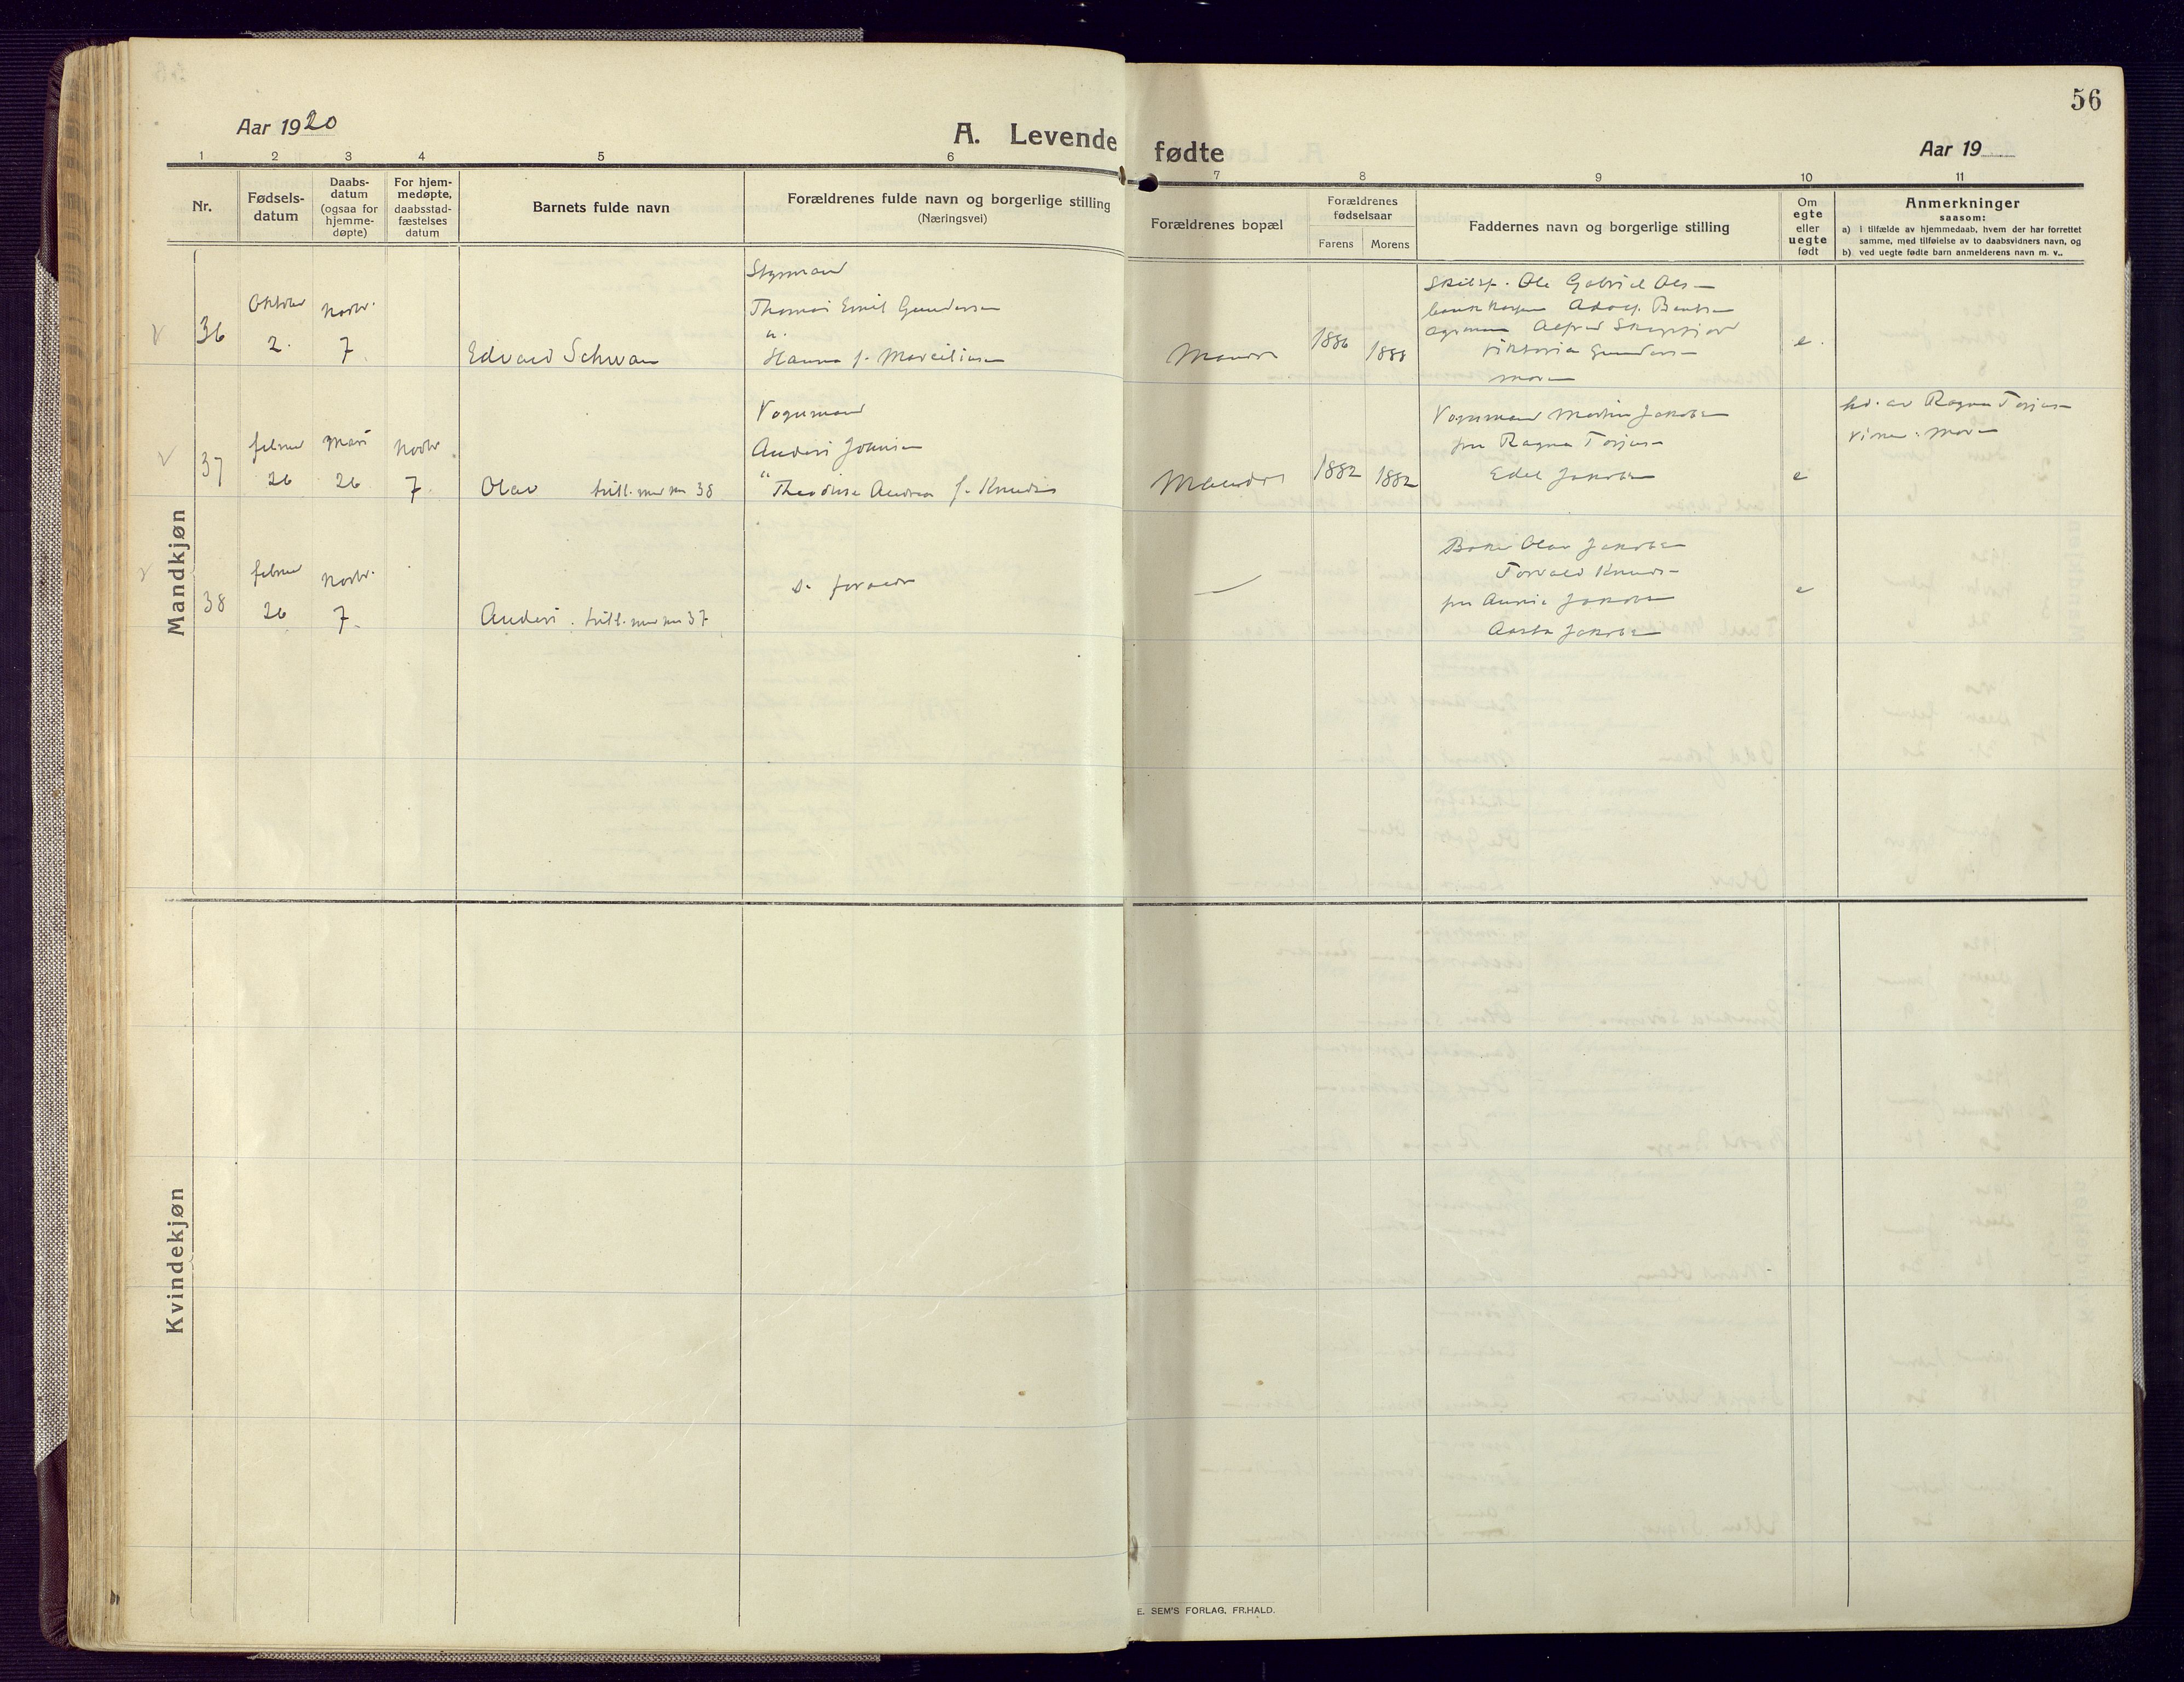 56
Aar 1920
A. Levende fødte
Aar 19
1 2 3 4 5 6 7 8 9 10 11
Nr.
Fødsels-
datum
Daabs-
datum
(ogsaa for
hjemme-
døpte)
For hjem-
medøpte,
daabsstad-
fæstelses
datum
Barnets fulde navn
Forældrenes fulde navn og borgerlige stilling
(Næringsvei)
Forældrenes bopæl
Forældrenes
fødselsaar
Farens
Morens
Faddernes navn og borgerlige stilling
Om
egte
eller
uegte
født
Anmerkninger
saasom:
a) i tilfælde av hjemmedaab, hvem der har forrettet
samme, med tilføielse av to daabsvidners navn, og
b) ved uegte fødte barn anmelderens navn m. v..
Mandkjøn
36
Oktober
2.
Novbr.
7.
Edvard Schwan
Styrmand
Thomas Emil Gundersen
Hanna f. Marciliusen
1886
1888
Ole Gabriel
Alfred
Viktoria Gundersen
moren
e.
37
februar
26
mars
26
Novbr
7.
Olav tvill. med no 38
Vognmand
Anders
Andrea f. Knudsen
1882
1882
Vognmand Martin Jakobsen
fru Ragna Torjusen
Edel Jakobsen
e
hd. av Ragna Torjusen
moren
38
februar
26
Novbr.
7.
Anders. tvill. med no 37
—
Olav Jakobsen
Torvald Knudsen
fru Annie Jakobsen
Aasta Jakobsen
e
Kvindekjøn
E. SEM'S FORLAG, FR.HALD.